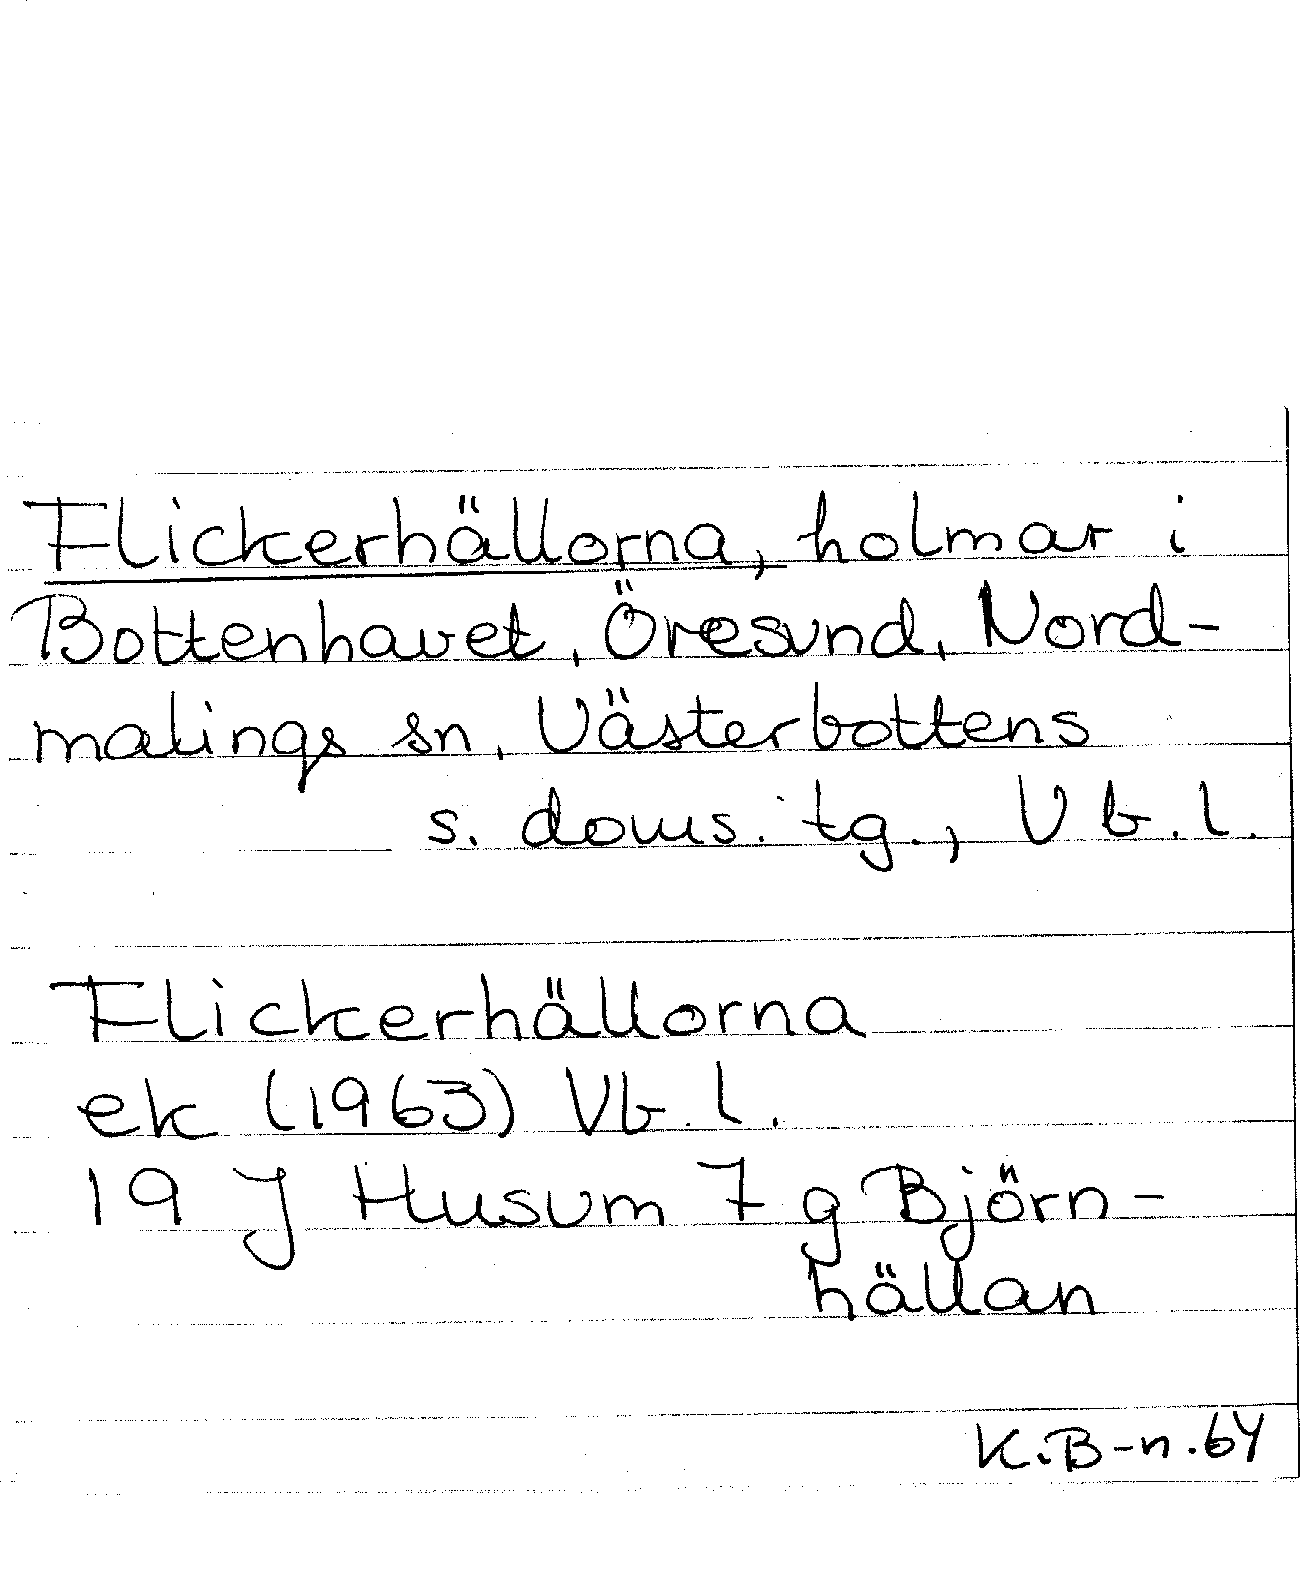 Flickerhällorna, holmar i
Bottenhavet, Öresund, Nord-
malings sn, Västerbottens
s. doms. tg., Vb. l.
Flickerhällorna
ek (1963) Vb. l.
19 J Husum 7 g Björn-
hällan
K.B-n.64